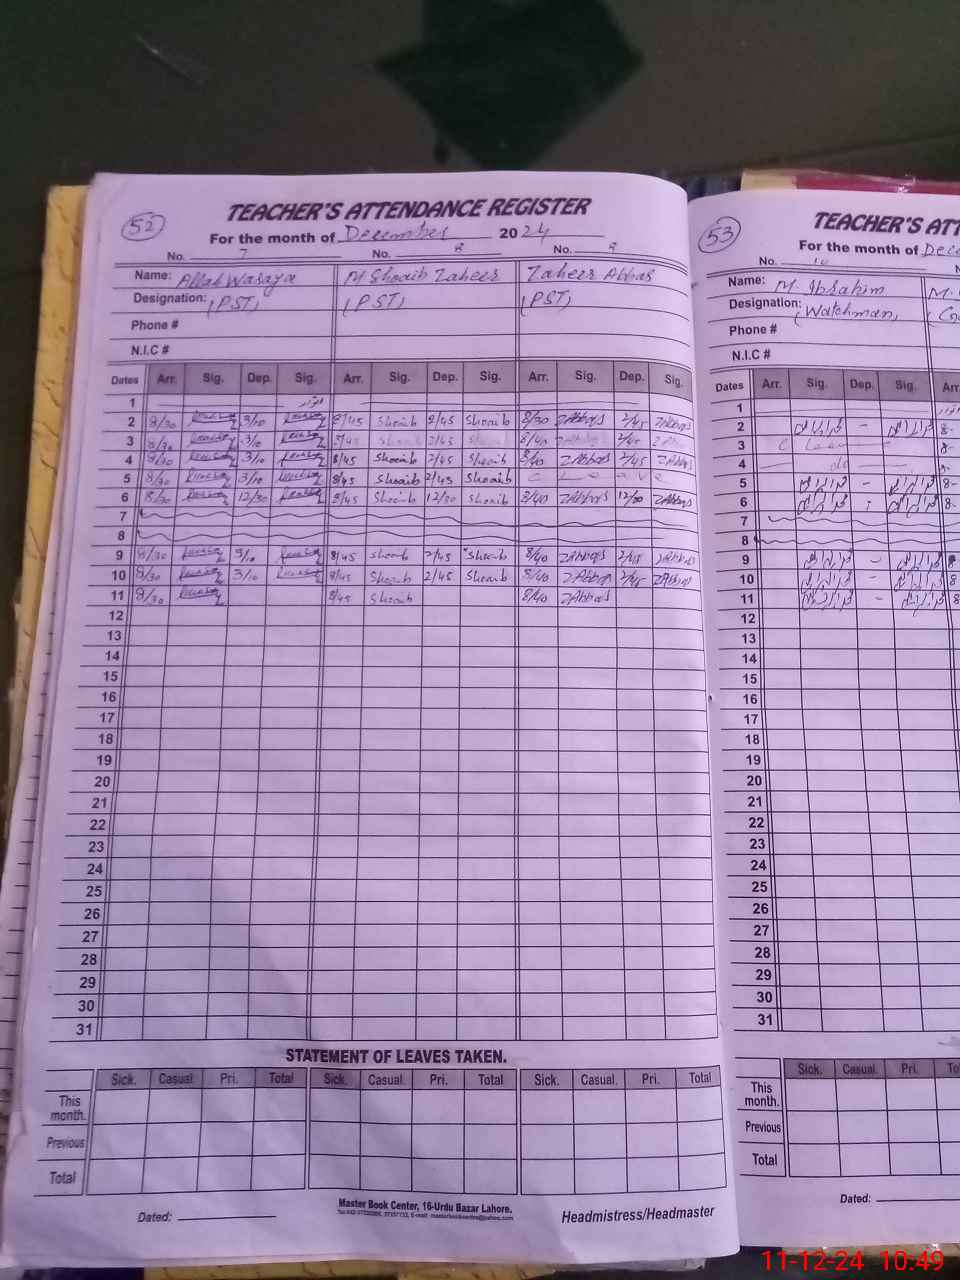 52
TEACHER'S ATTENDANCE REGISTER
For the month of December 2024
No. 7 No. 8 No. 9
Name: Allah Wasaya M Shoaib Zaheer Zaheer Abbas
Designation: (PST) (PST) (PST)
Phone #
N.I.C #
Dates Arr. Sig. Dep. Sig. Arr. Sig. Dep. Sig. Arr. Sig. Dep. Sig.
1 اتوار
2 8/30 3/10 8/45 Shoaib 2/45 Shoaib 8/30 ZAbbas 2/45 ZAbbas
3 8/30 3/10 8/45 Shoaib 2/45 8/40 ZAbbas 2/40
4 8/30 3/10 8/45 Shoaib 2/45 Shoaib 8/40 ZAbbas 2/45 ZAbbas
5 8/30 3/10 8/45 Shoaib 2/45 Shoaib C Leave
6 8/30 12/30 8/45 Shoaib 12/30 Shoaib 8/40 ZAbbas 12/30 ZAbbas
7
8
9 8/30 3/10 8/45 Shoaib 2/45 Shoaib 8/40 ZAbbas 2/45 ZAbbas
10 8/30 3/10 8/45 Shoaib 2/45 Shoaib 8/40 ZAbbas 2/45 ZAbbas
11 8/30 8/45 Shoaib 8/40 ZAbbas
12
13
14
15
16
17
18
19
20
21
22
23
24
25
26
27
28
29
30
31
STATEMENT OF LEAVES TAKEN.
Sick. Casual. Pri. Total Sick. Casual. Pri. Total Sick. Casual. Pri. Total
This month.
Previous
Total
Master Book Center, 16-Urdu Bazar Lahore.
Dated: Headmistress/Headmaster
53
TEACHER'S ATT
For the month of Dec
No. 10 N
Name: M. Ibrahim M.
Designation: (Watchman)
Phone #
N.I.C #
Dates Arr. Sig. Dep. Sig. Arr
1
2 - 8-
3 C Leave 8-
4 do
5 - 8-
6 8-
7
8
9 -
10 - 8
11 - 8
12
13
14
15
16
17
18
19
20
21
22
23
24
25
26
27
28
29
30
31
Sick. Casual. Pri. To
This month.
Previous
Total
Dated:
11-12-24 10:49